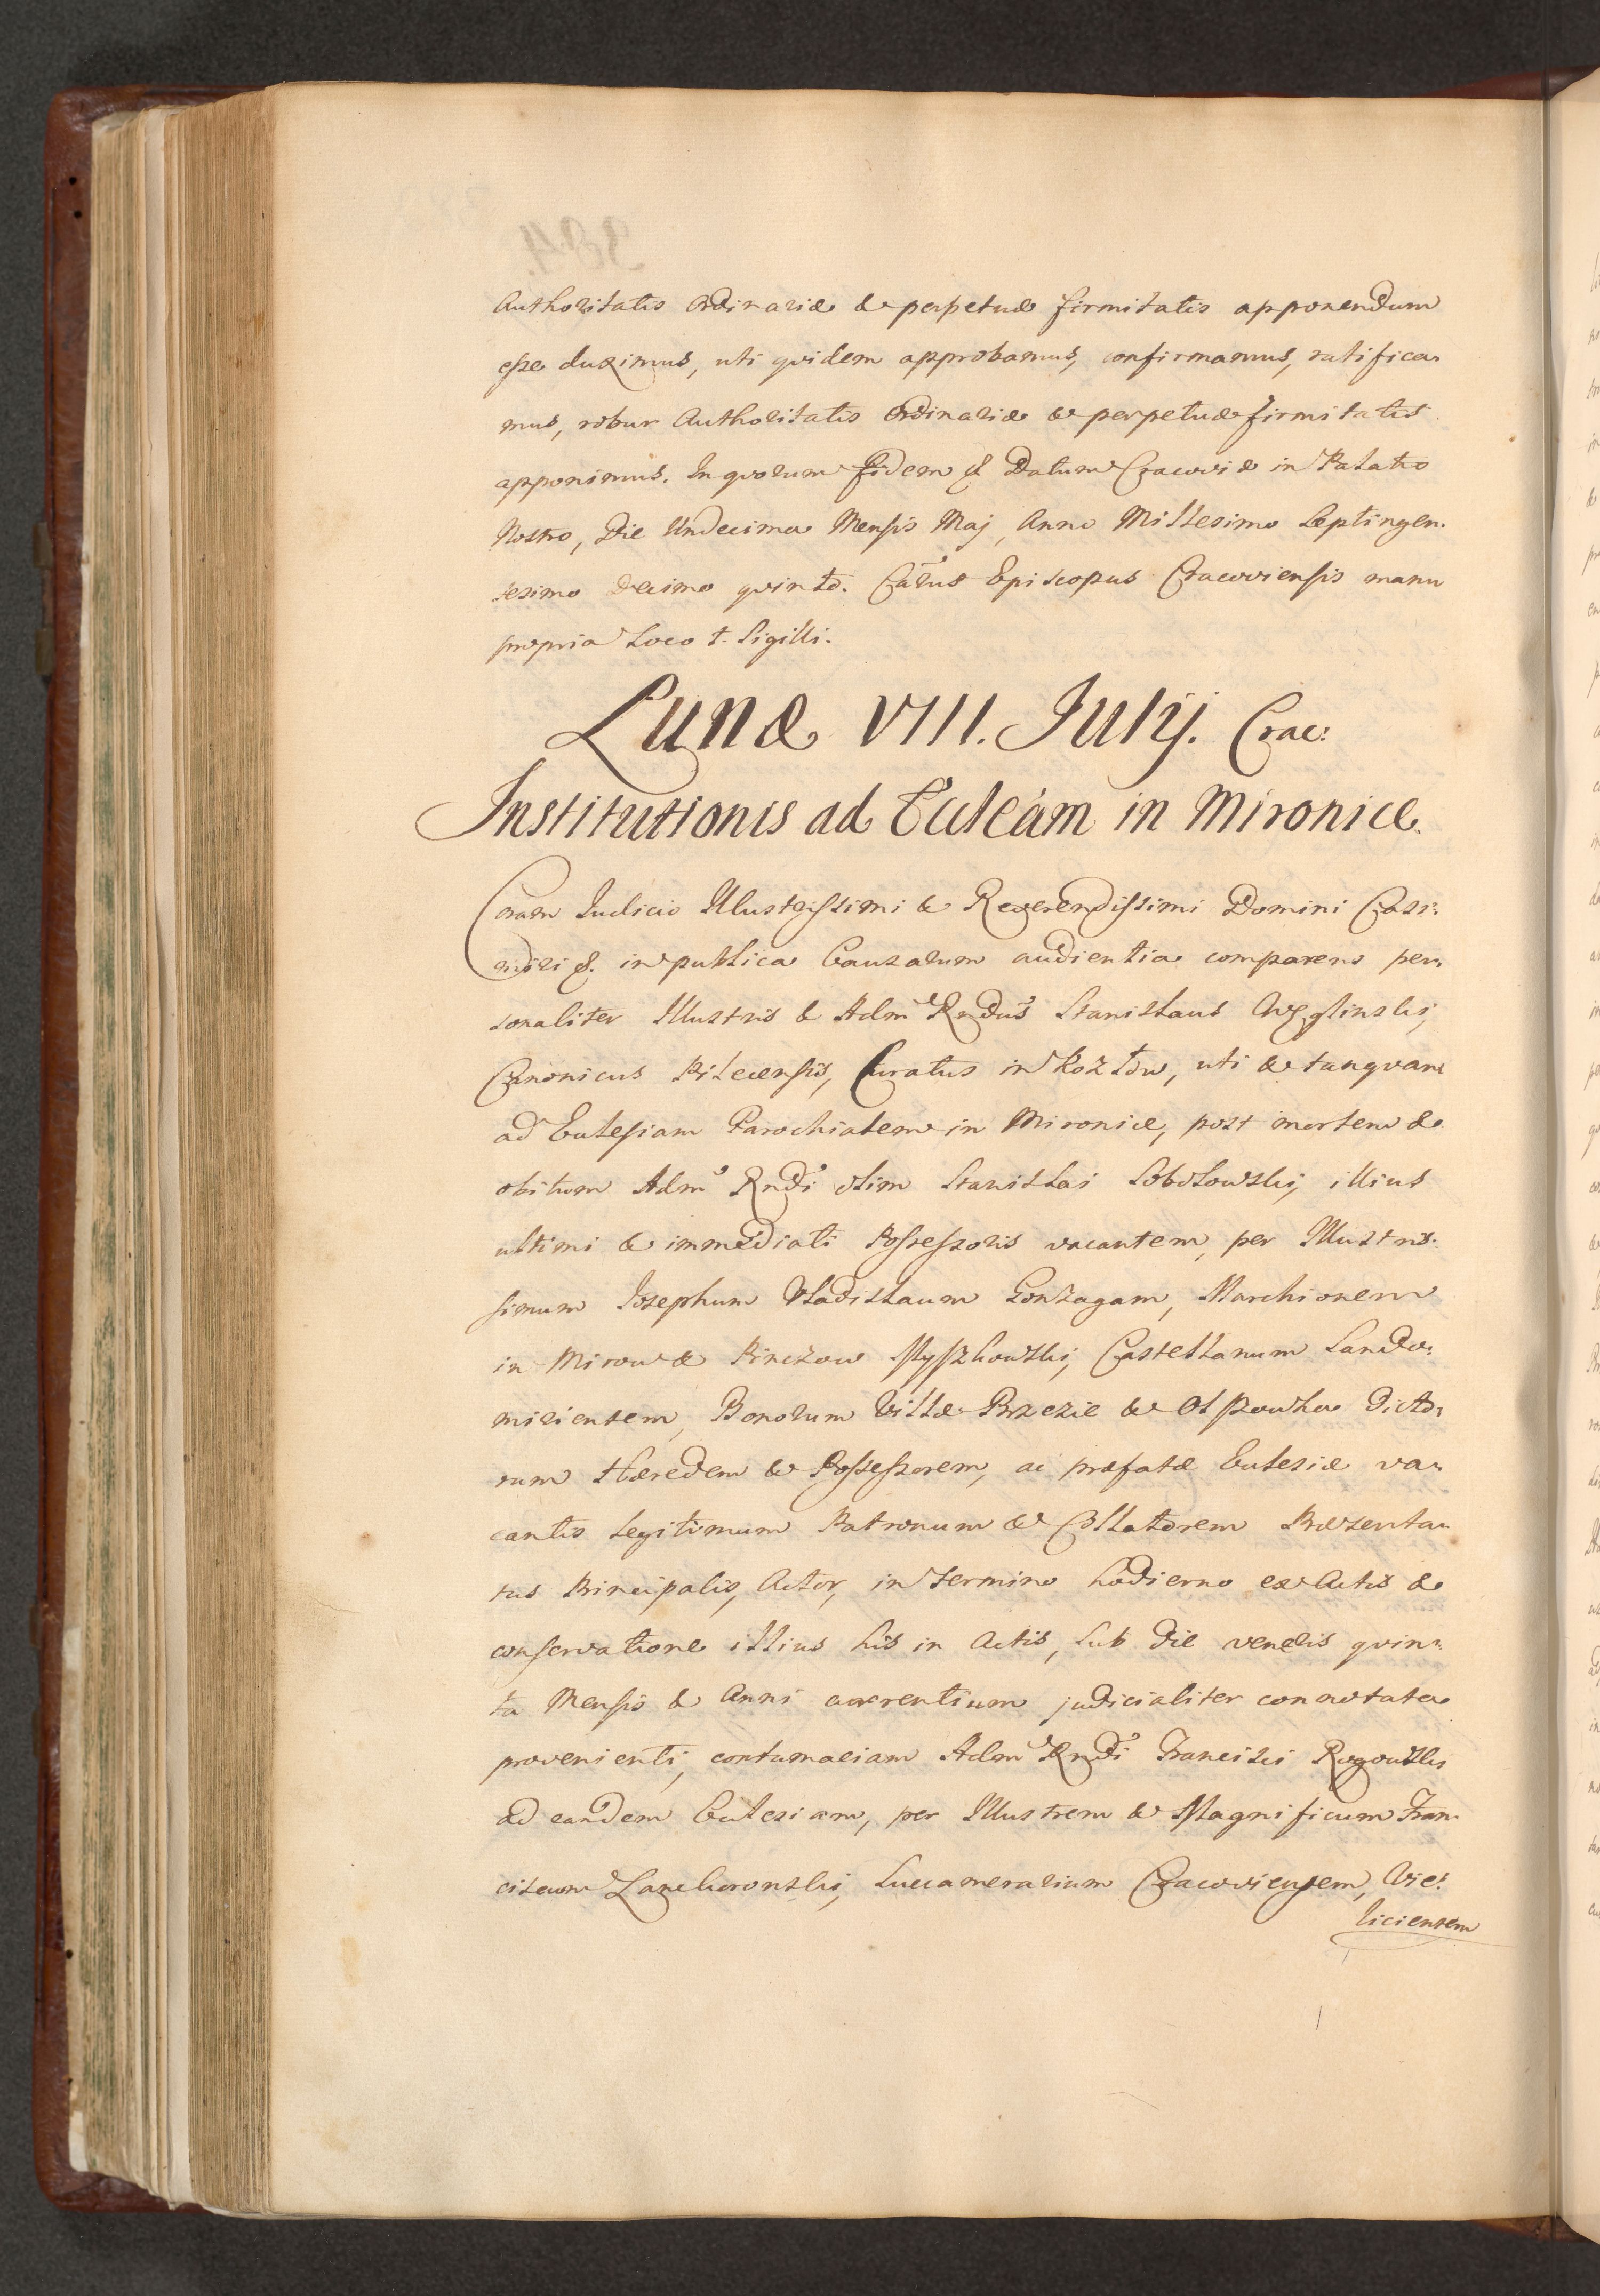 Authoritatis Ordinariæ & perpetuæ firmitatis apponendum
esse duximus, uti qvidem approbamus, confirmamus, ratifica-
mus, robur Authoritatis Ordinariæ & perpetuæ firmitatis
apponimus. In qvorum fidem &. Datum Cracoviæ in Palatio
Nostro, Die Undecima Mensis Maj, Anno Millesimo Septingen-
tesimo Decimo qvinto. Episcopus Cracoviensis manu
propria Loco †. Sigilli.
Lunæ VIII. Julij. Crac:
Institutionis ad Eccleãm in Mironice
Coram Iudicio Illustrissimi & Reverendissimi Domini Casi-
miri &. in publica Causarum audientia comparens per-
sonaliter Illustris & Adm Rndus Stanislaus Węglinski,
Canonicus Pilecensis, Curatus in Kozłow, uti & tanqvam
ad Ecclesiam Parochialem in Mironice, post mortem &
obitum Adm Rndi olim Stanislai Sobolowski, illius
ultimi & immediati Possessoris vacantem, per Illustris-
simum Josephum Vladislaum Gonzagam, Marchionem
in Mirow & Pinczow Myszkowski, Castellanum Sando-
miriensem, Bonorum Villæ Brzezie & Olszowka dicto-
rum Hæredem & Possessorem, ac præfatæ Ecclesiæ va-
cantis legitimum Patronum & Collatorem Præsenta-
tus Principalis, Actor, in termino hodierno ex Actis &
conservatione illius his in Actis, sub die veneris qvin-
ta Mensis & Anni currentium judicialiter connotata
provenienti, contumaciam Adm Rndi Francisci Rogowski
ad eandem Ecclesiam, per Illustrem & Magnificum Fran-
ciscum Lanckoronski, Succamerarium Cracoviensem, Vie-
liciensem